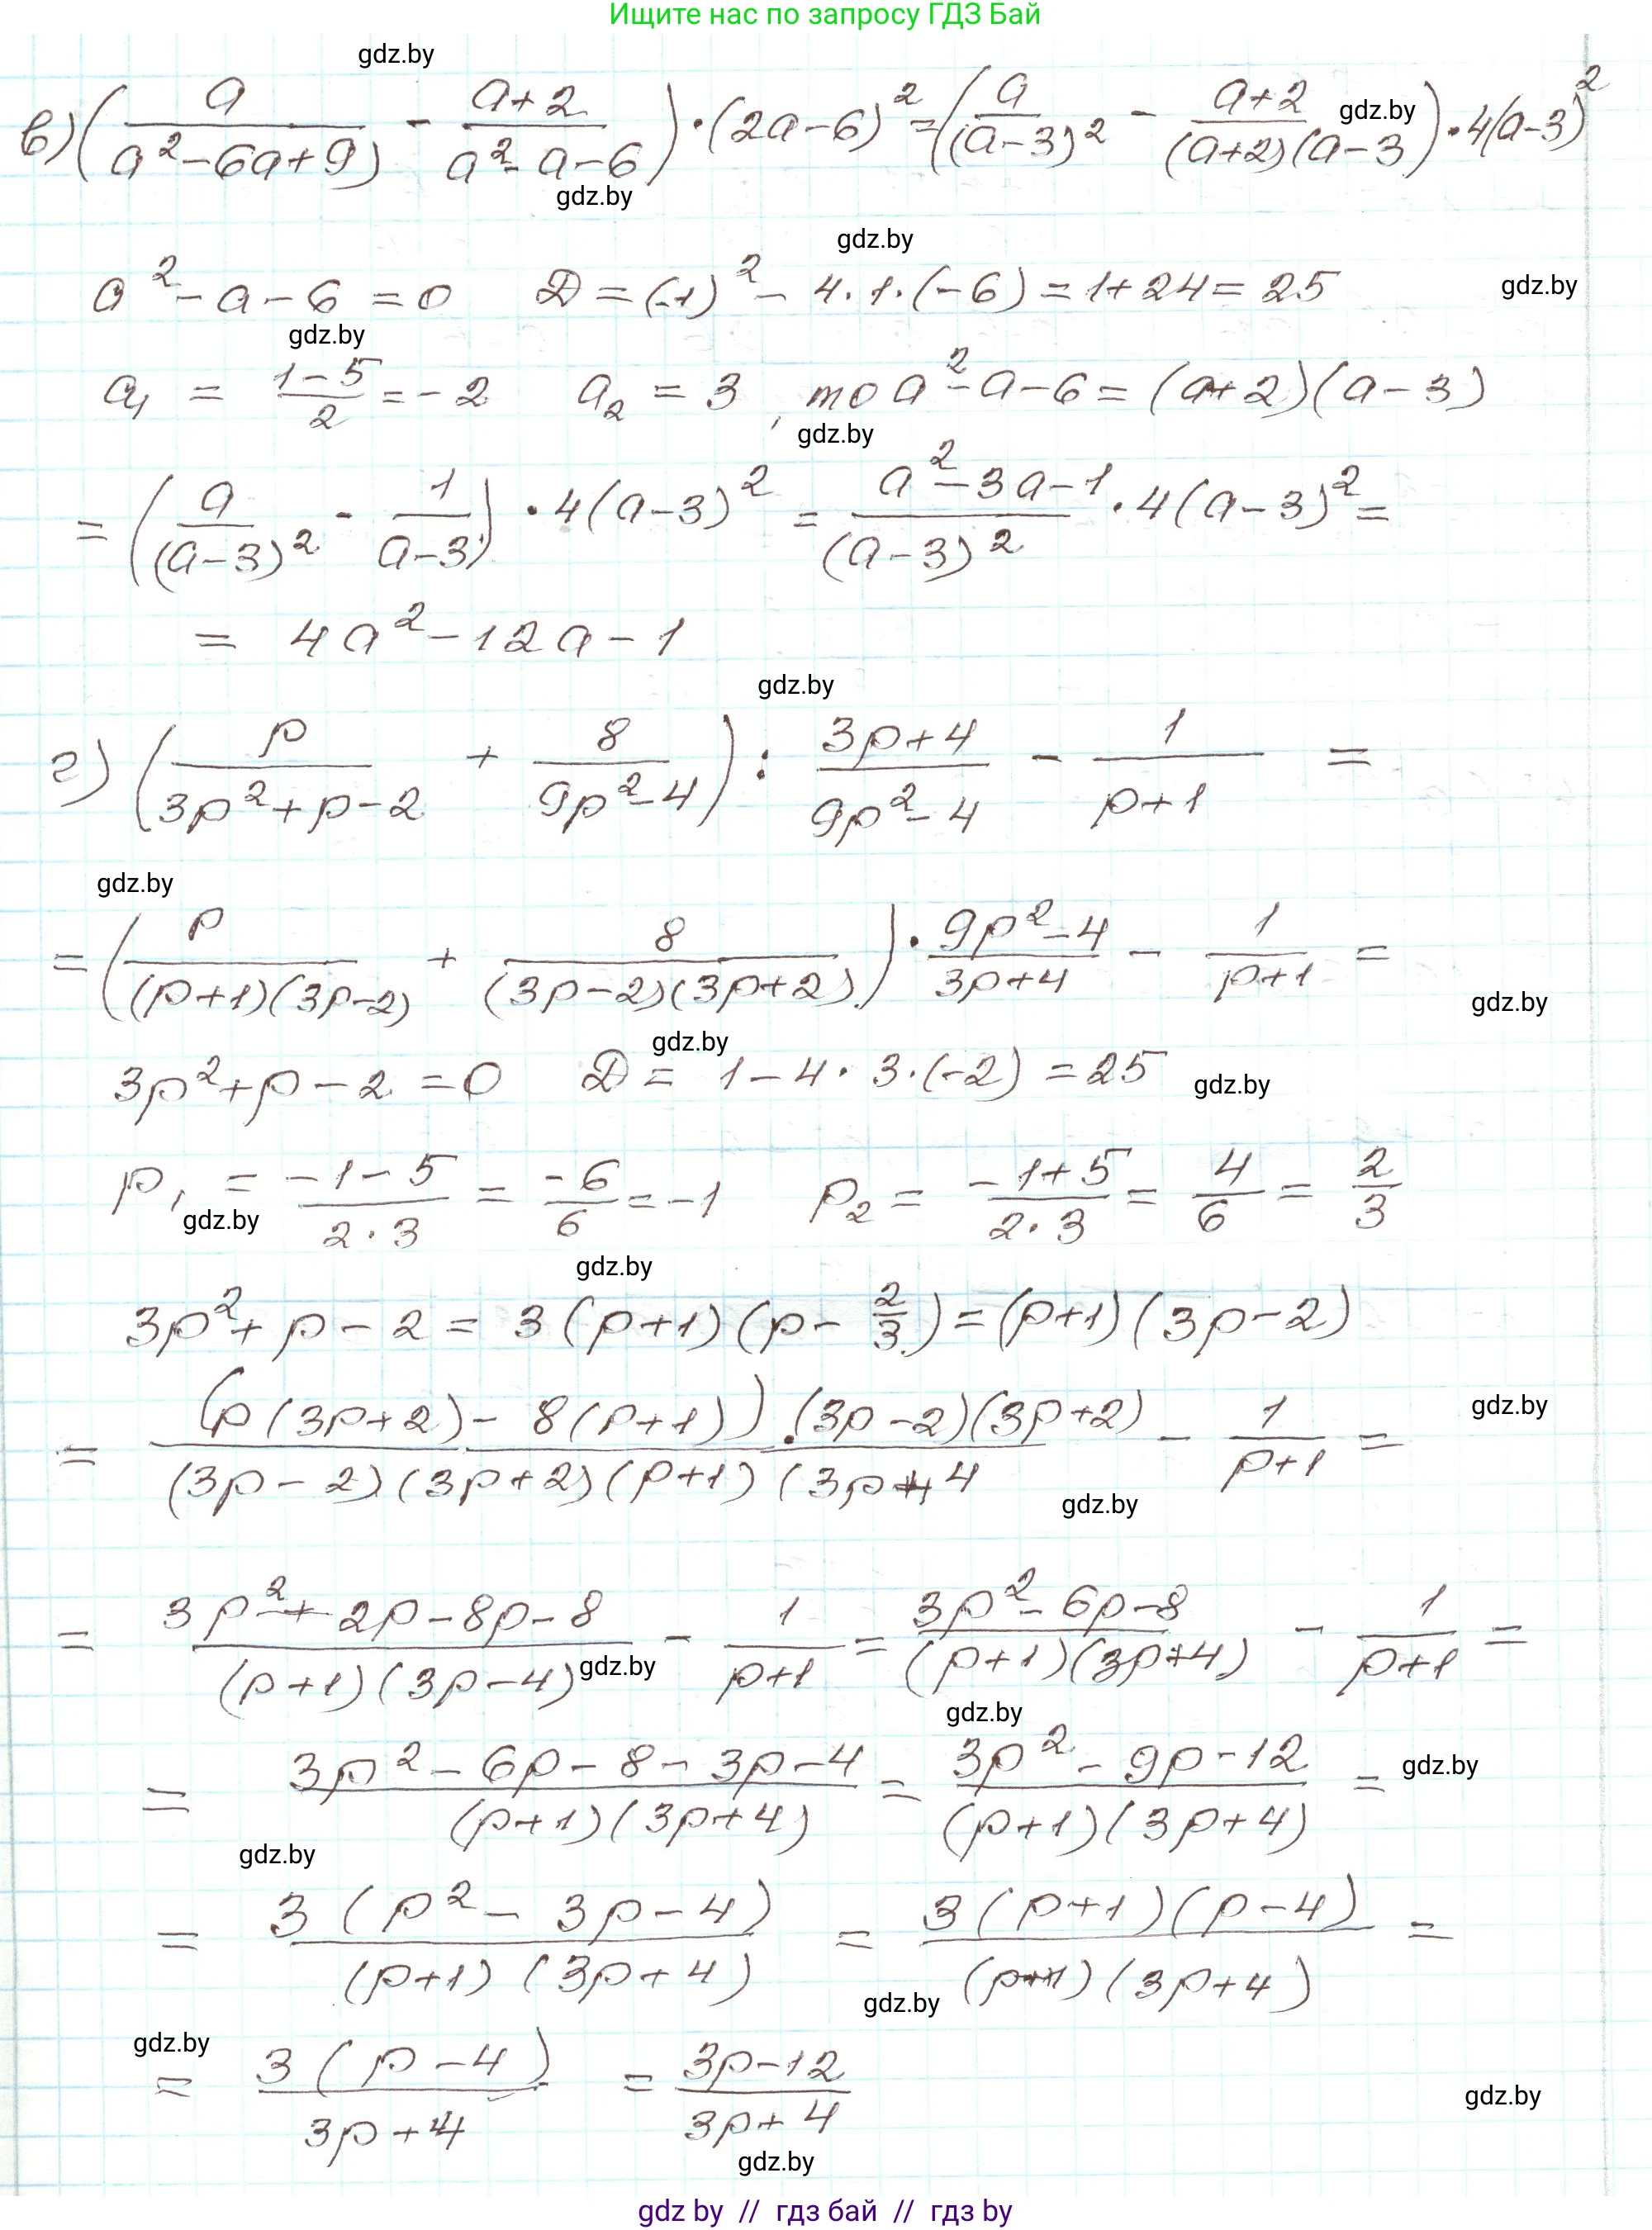 Ищите нас по запросу ГДЗ Бай
gdz.by
в) (a/(a²-6a+9) - (a+2)/(a²-a-6)) · (2a-6)² = (a/(a-3)² - (a+2)/((a+2)(a-3)) · 4(a-3)²
gdz.by
gdz.by
gdz.by
a²-a-6=0 D=(-1)²-4·1·(-6)=1+24=25
gdz.by
gdz.by
a₁ = (1-5)/2 = -2 a₂ = 3, то a²-a-6=(a+2)(a-3)
gdz.by
= (a/(a-3)² - 1/(a-3)) · 4(a-3)² = (a²-3a-1)/(a-3)² · 4(a-3)² =
= 4a²-12a-1
gdz.by
г) (p/(3p²+p-2) + 8/(9p²-4)) : (3p+4)/(9p²-4) - 1/(p+1) =
gdz.by
= (p/((p+1)(3p-2)) + 8/((3p-2)(3p+2))) · (9p²-4)/(3p+4) - 1/(p+1) =
gdz.by
gdz.by
3p²+p-2=0 D= 1-4·3·(-2)=25
gdz.by
p₁ = (-1-5)/(2·3) = -6/6 = -1 p₂ = (-1+5)/(2·3) = 4/6 = 2/3
gdz.by
gdz.by
3p²+p-2 = 3(p+1)(p-2/3) = (p+1)(3p-2)
= ((p(3p+2)-8(p+1))·(3p-2)(3p+2))/((3p-2)(3p+2)(p+1)(3p+4 - 1/(p+1) =
gdz.by
gdz.by
= (3p²+2p-8p-8)/((p+1)(3p-4)) - 1/(p+1) = (3p²-6p-8)/((p+1)(3p+4)) - 1/(p+1) =
gdz.by
gdz.by
= (3p²-6p-8-3p-4)/((p+1)(3p+4)) = (3p²-9p-12)/((p+1)(3p+4)) =
gdz.by
gdz.by
= 3(p²-3p-4)/((p+1)(3p+4)) = 3(p+1)(p-4)/((p+1)(3p+4)) =
gdz.by
gdz.by
= 3(p-4)/(3p+4) = (3p-12)/(3p+4)
gdz.by
gdz.by
gdz by // гдз бай // гдз by